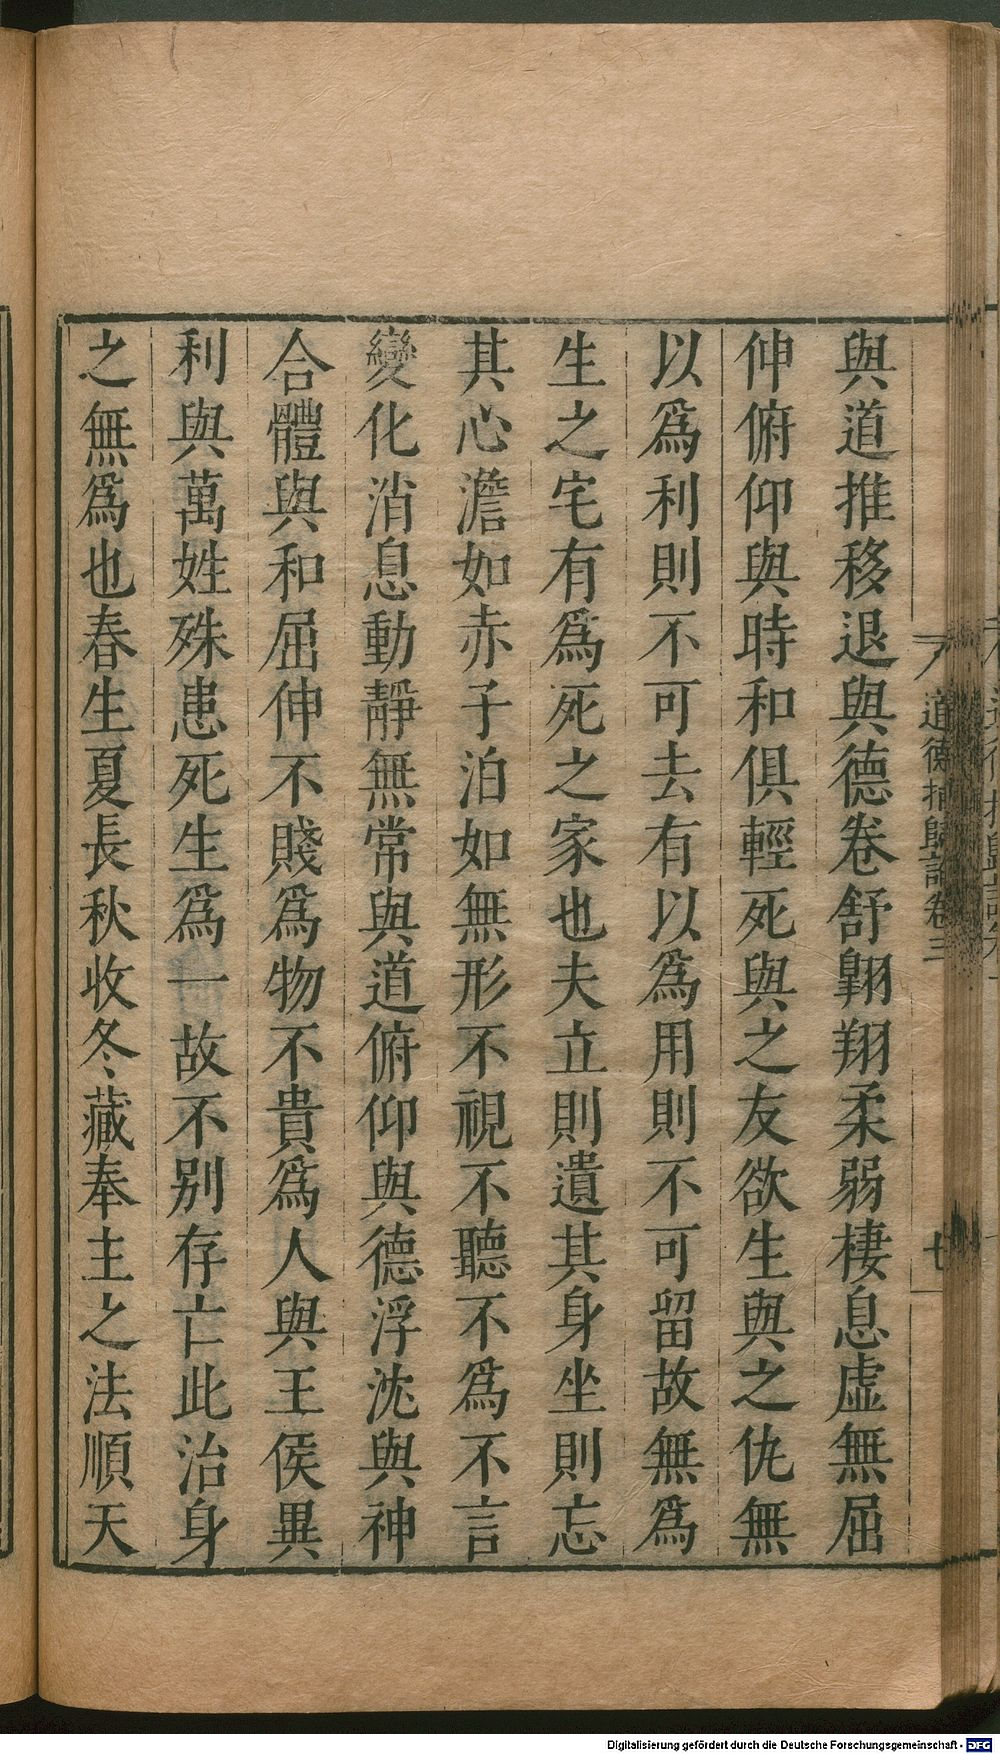 與道推移退與德卷舒翱翔柔弱棲息虛無屈
伸俯仰與時和俱輕死與之友欲生與之仇無
以爲利則不可去有以爲用則不可留故無爲
生之宅有爲死之家也夫立則遺其身坐則忘
其心澹如赤子泊如無形不視不聽不爲不言
變化消息動靜無常與道俯仰與德浮沈與神
合體與和屈伸不賤爲物不貴爲人與王侯異
利與萬姓殊患死生爲一故不别存亡此治身
之無爲也春生夏長秋收冬藏奉主之法順天
道德指歸論卷三
七
Digitalisierung gefördert durch die Deutsche Forschungsgemeinschaft - DFG